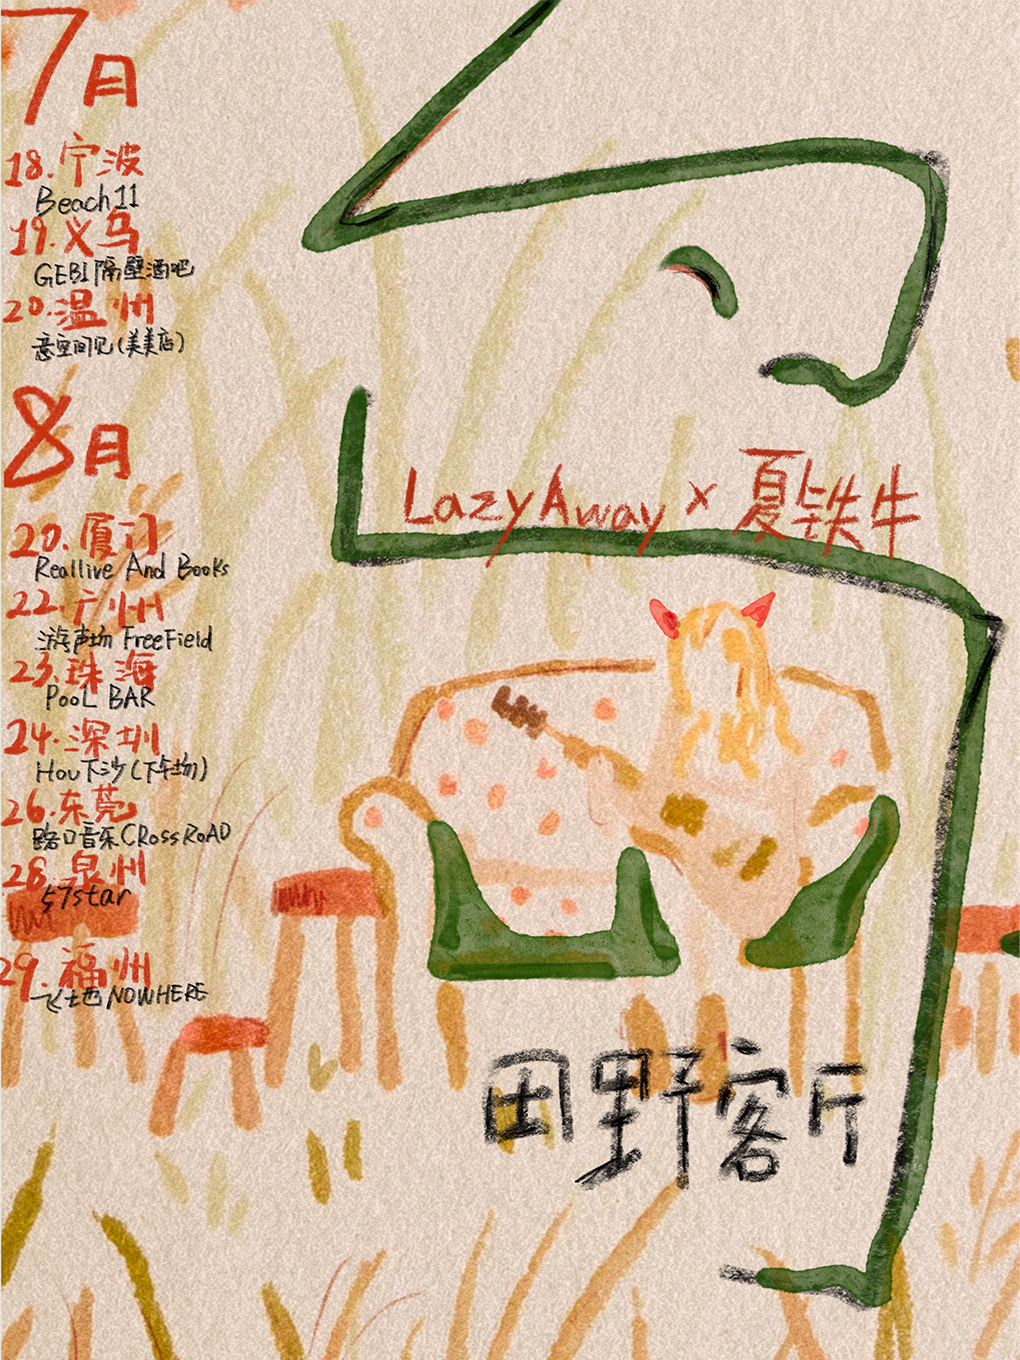 7月
18.宁波
Beach11
19.义乌
GEBI隔壁酒吧
20.温州
音空间见(美美店)
8月
20.厦门
Reallive And Books
22.广州
游声场 FreeField
23.珠海
PooL BAR
24.深圳
Hou下沙(下午场)
26.东莞
路口音乐CRossRoAD
28.泉州
57star
29.福州
飞地西NOWHERE
LazyAway × 夏铁牛
田野客厅